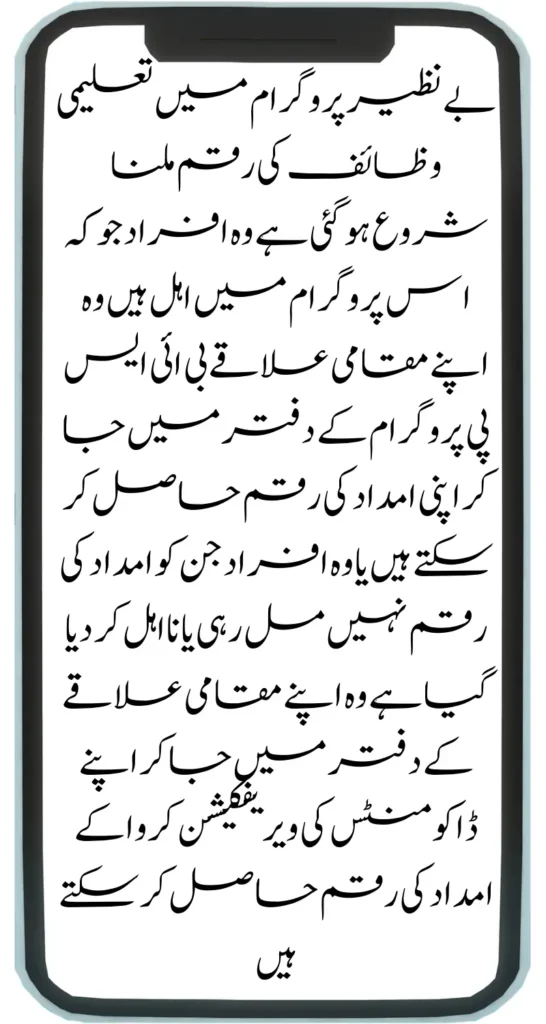 بے نظیر پروگرام میں تعلیمی
وظائف کی رقم ملنا
شروع ہو گئی ہے وہ افراد جو کہ
اس پروگرام میں اہل ہیں وہ
اپنے مقامی علاقے بی ائی ایس
پی پروگرام کے دفتر میں جا
کر اپنی امداد کی رقم حاصل کر
سکتے ہیں یا وہ افراد جن کو امداد کی
رقم نہیں مل رہی یا نا اہل کر دیا
گیا ہے وہ اپنے مقامی علاقے
کے دفتر میں جا کر اپنے
ڈاکومنٹس کی ویریفکیشن کروا کے
امداد کی رقم حاصل کر سکتے
ہیں